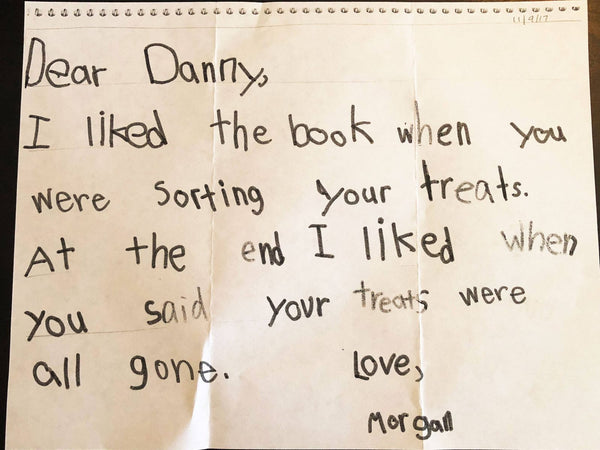 11/9/17
Dear Danny,
I liked the book when you
were sorting your treats.
At the end I liked when
you said your treats were
all gone. Love,
Morgan